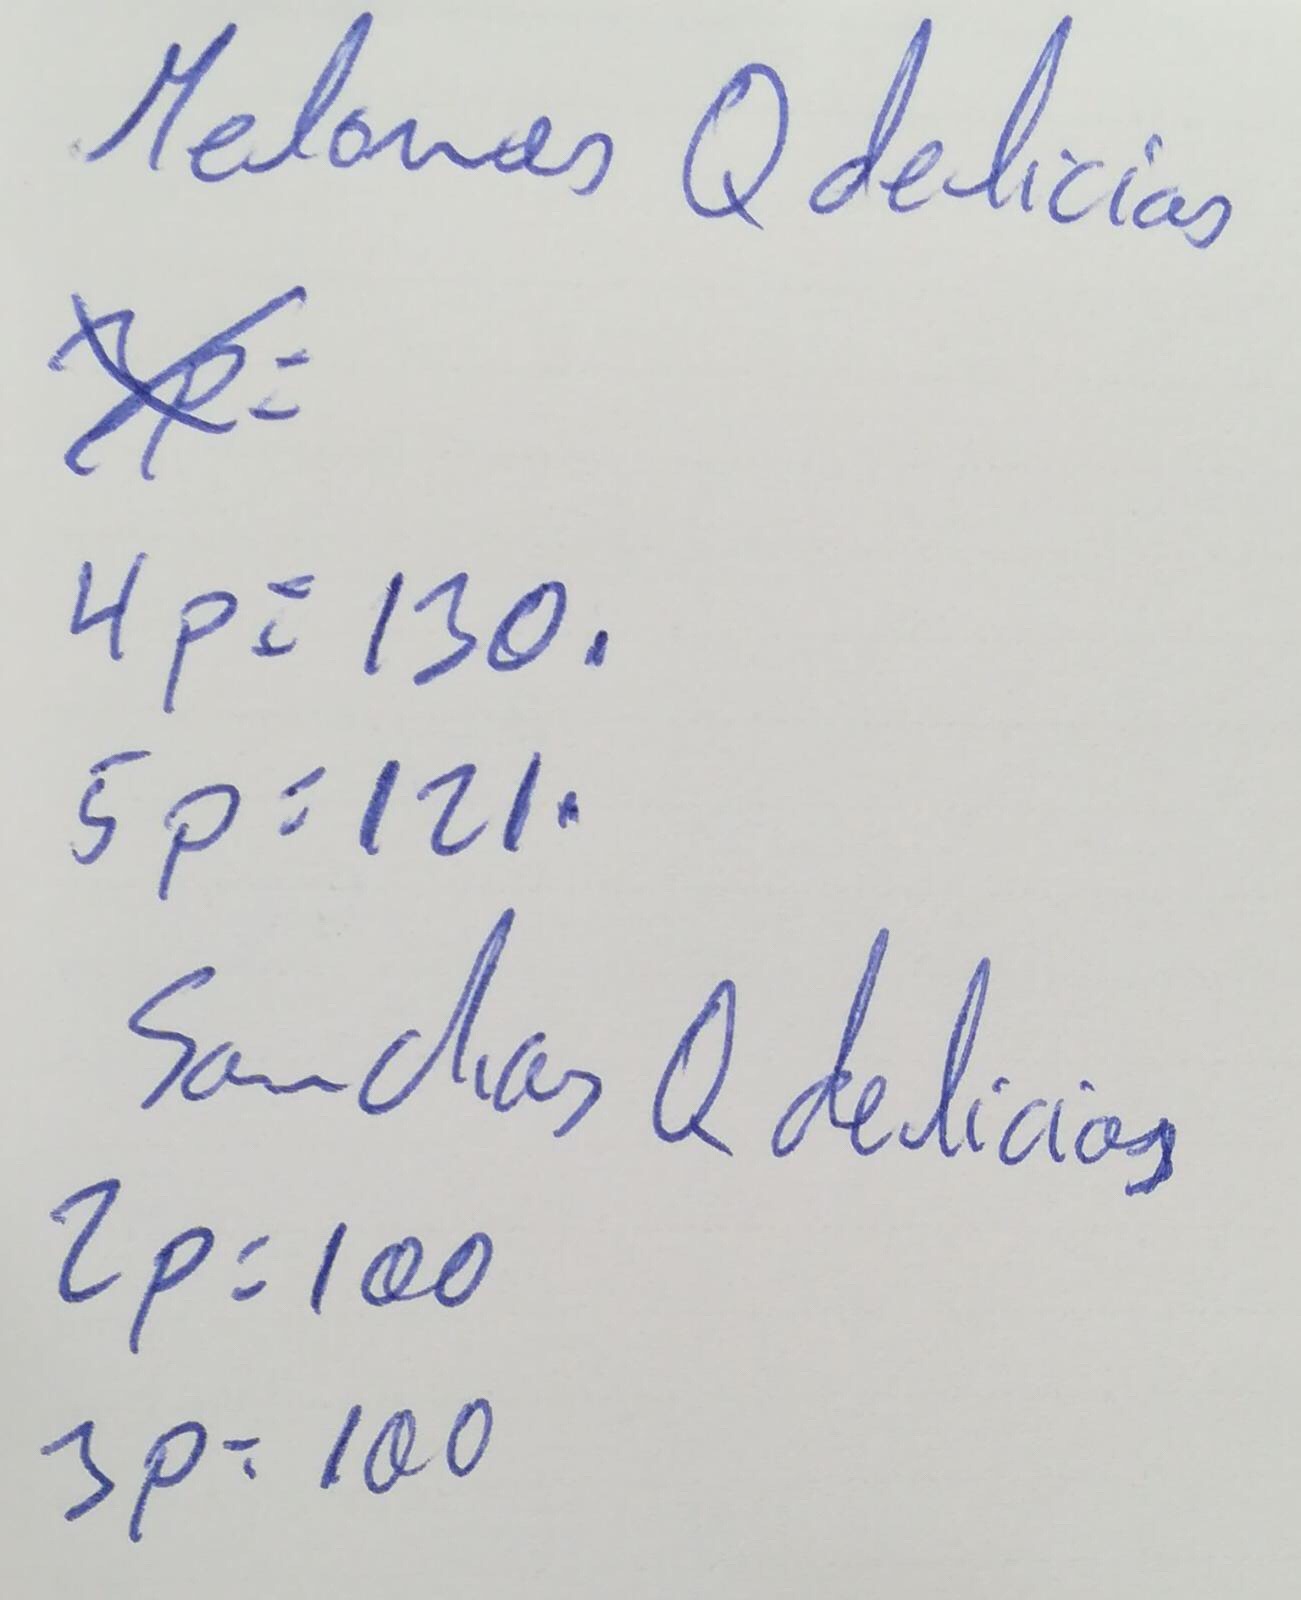 Melones Q delicias
4p = 130.
5p = 121.
Sandias Q delicias
2p = 100
3p = 100